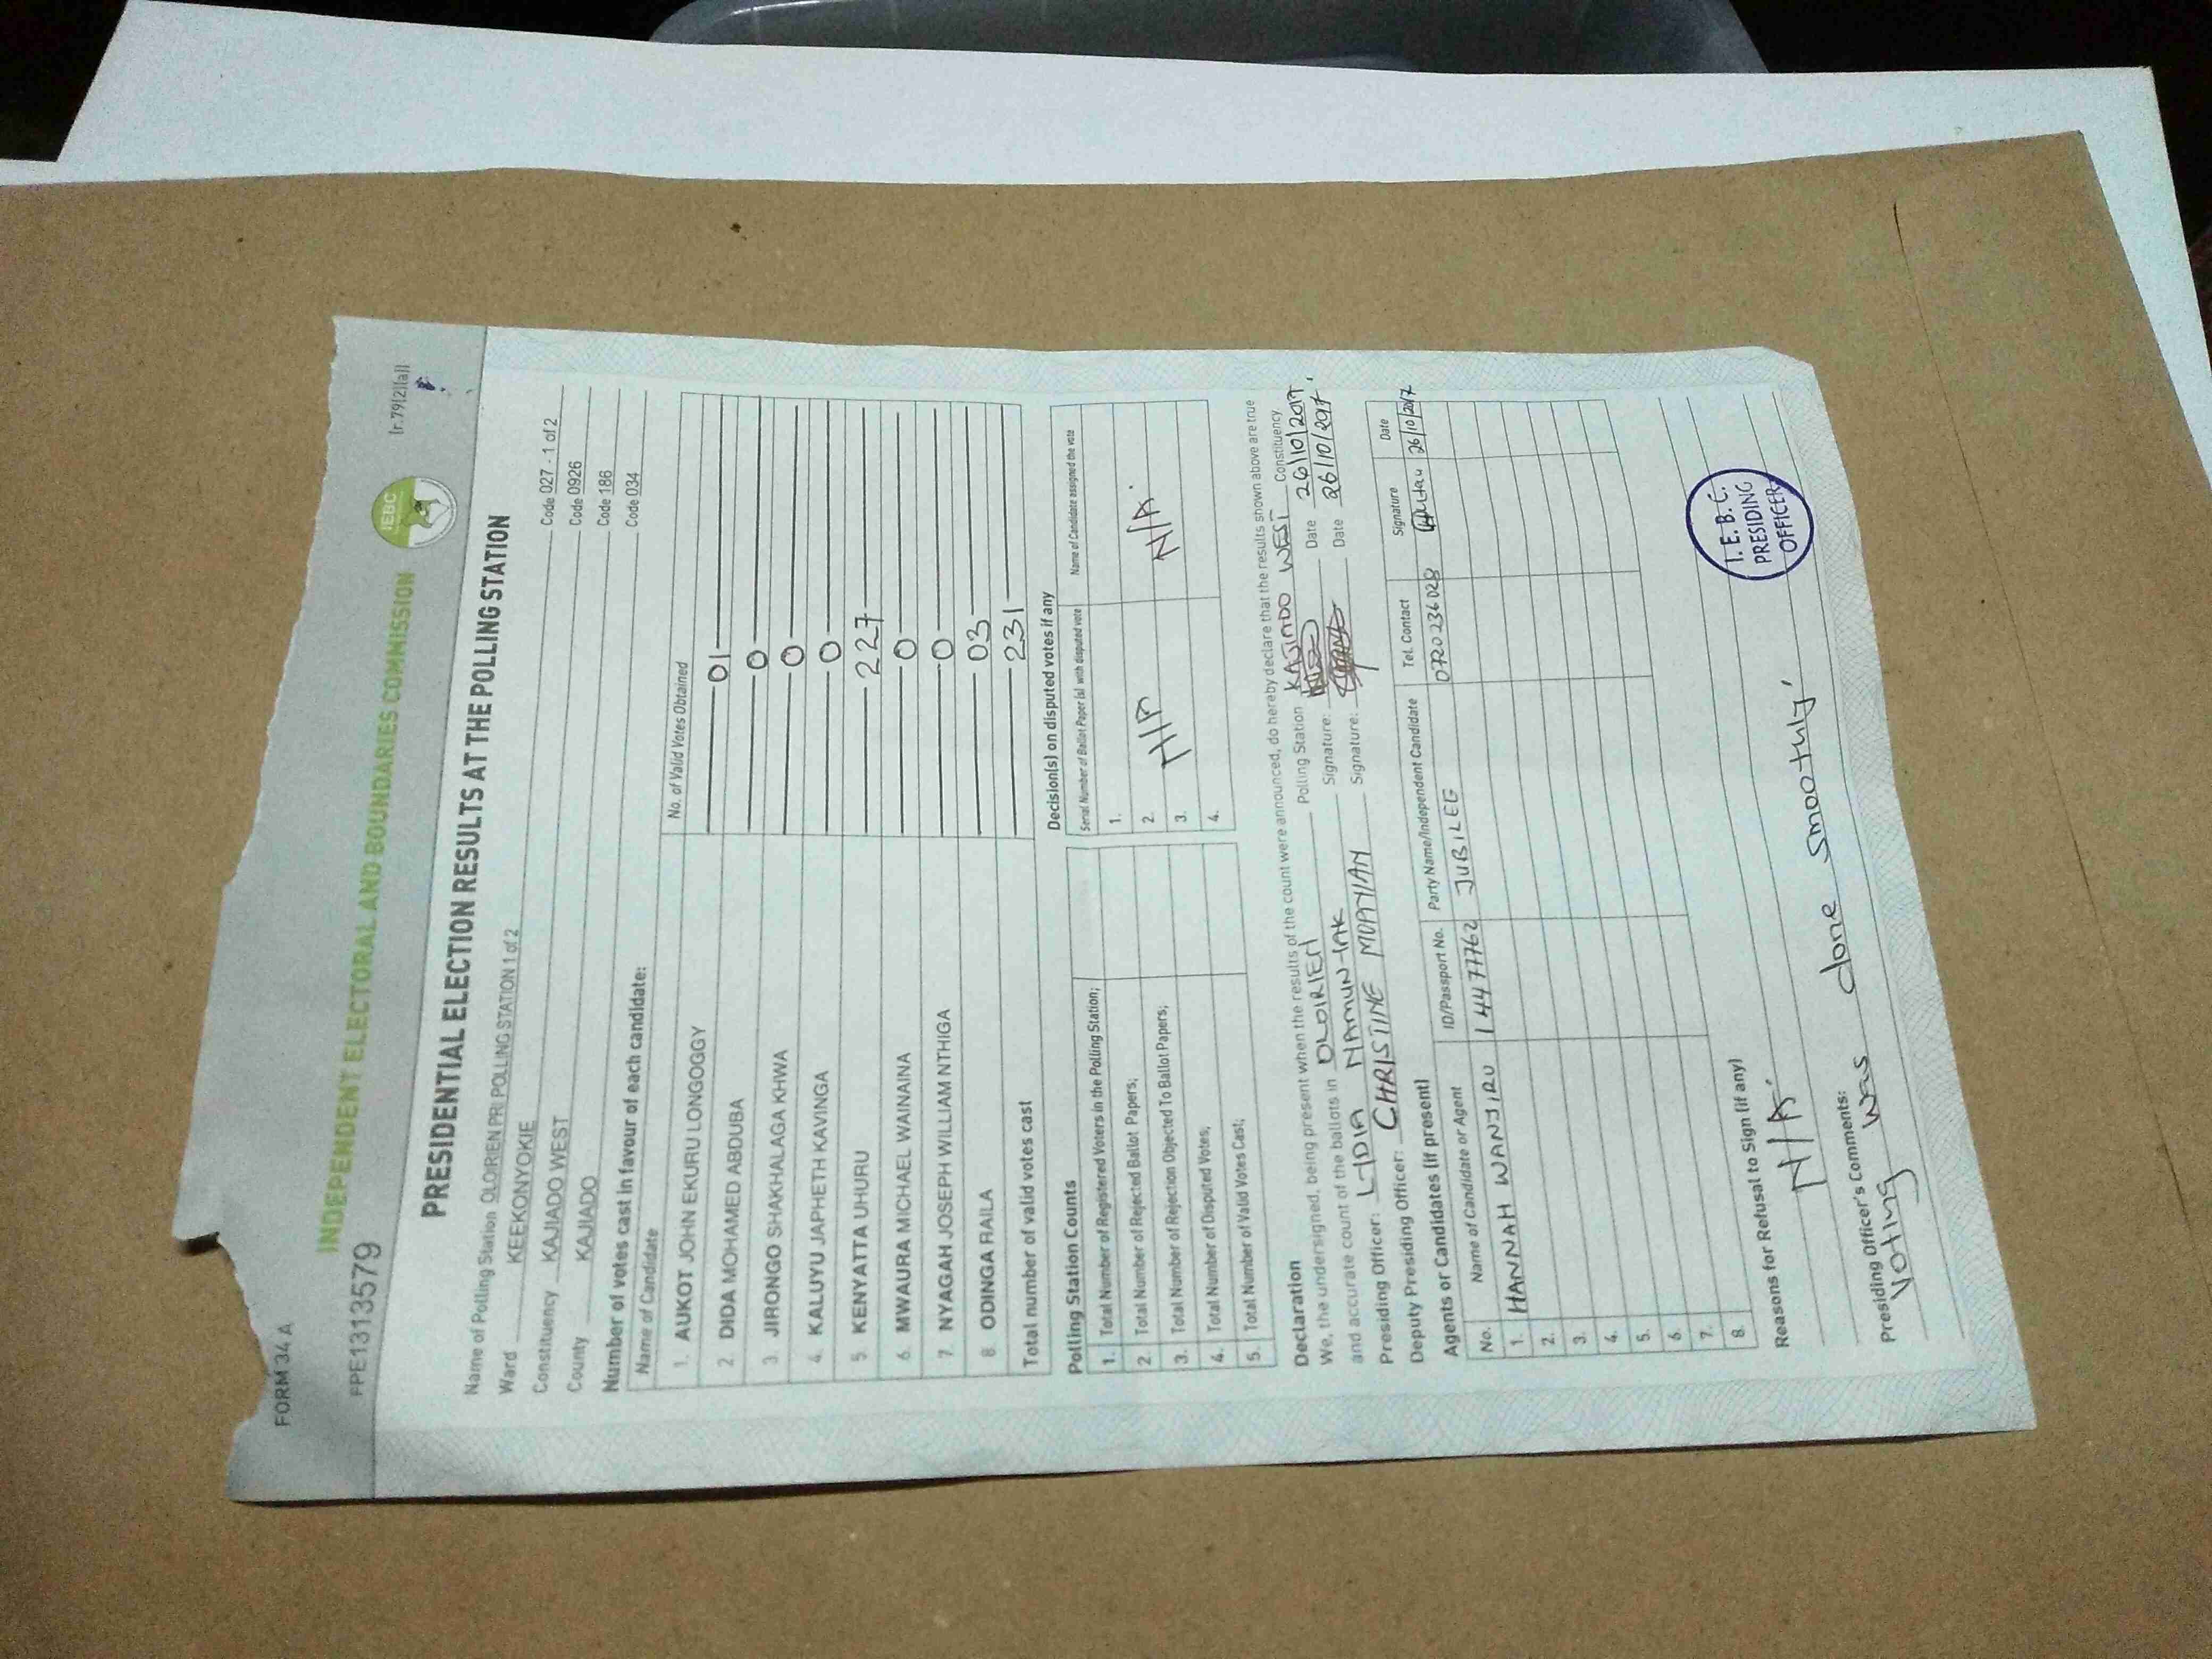 FORM 34 A
INDEPENDENT ELECTORAL AND BOUNDARIES COMMISSION
IEBC
(r.79(2)(a))
FPE1313579
PRESIDENTIAL ELECTION RESULTS AT THE POLLING STATION
Name of Polling Station OLOIRIEN PRI POLLING STATION 1 of 2 Code 027 - 1 of 2
Ward KEEKONYOKIE Code 0926
Constituency KAJIADO WEST Code 186
County KAJIADO Code 034
Number of votes cast in favour of each candidate:
Name of Candidate No. of Valid Votes Obtained
1. AUKOT JOHN EKURU LONGOGGY 01
2 DIDA MOHAMED ABDUBA 0
3. JIRONGO SHAKHALAGA KHWA 0
4. KALUYU JAPHETH KAVINGA 0
5 KENYATTA UHURU 227
6. MWAURA MICHAEL WAINAINA 0
7. NYAGAH JOSEPH WILLIAM NTHIGA 0
8. ODINGA RAILA 03
Total number of valid votes cast 231
Polling Station Counts
1. Total Number of Registered Voters in the Polling Station;
2. Total Number of Rejected Ballot Papers;
3. Total Number of Rejection Objected To Ballot Papers;
4. Total Number of Disputed Votes;
5. Total Number of Valid Votes Cast;
Decision(s) on disputed votes if any
Serial Number of Ballot Paper (s) with disputed vote Name of Candidate assigned the vote
1.
2. N/A N/A.
3.
4.
Declaration
We, the undersigned, being present when the results of the count were announced, do hereby declare that the results shown above are true
and accurate count of the ballots in OLOIRIEN Polling Station KAJIADO WEST Constituency
Presiding Officer: LYDIA Signature: Date 26/10/2017
Deputy Presiding Officer: CHRISTINE MOAYIAN Signature: Date 26/10/2017
Agents or Candidates (if present)
No. Name of Candidate or Agent ID/Passport No. Party Name/Independent Candidate Tel. Contact Signature Date
1. HANNAH WANJIRU 14477762 JUBILEE 0720236028 26/10/2017
2.
3.
4.
5.
6.
7.
8.
Reasons for Refusal to Sign (if any)
N/A.
Presiding Officer's Comments:
Voting was done smoothly.
I.E.B.C.
PRESIDING
OFFICER